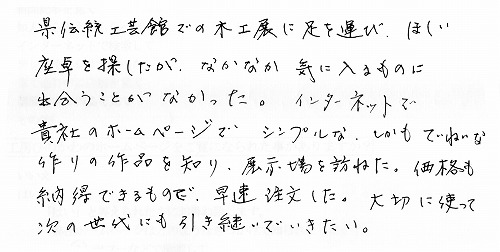 県伝統工芸館での木工展に足を運び、ほしい
座卓を探したが、なかなか 気に入るものに
出会うことがなかった。インターネットで
貴社のホームページで シンプルな、しかも ていねいな
作りの作品を知り、展示場を訪ねた。価格も
納得できるもので、早速 注文した。大切に使って
次の世代にも引き継いでいきたい。